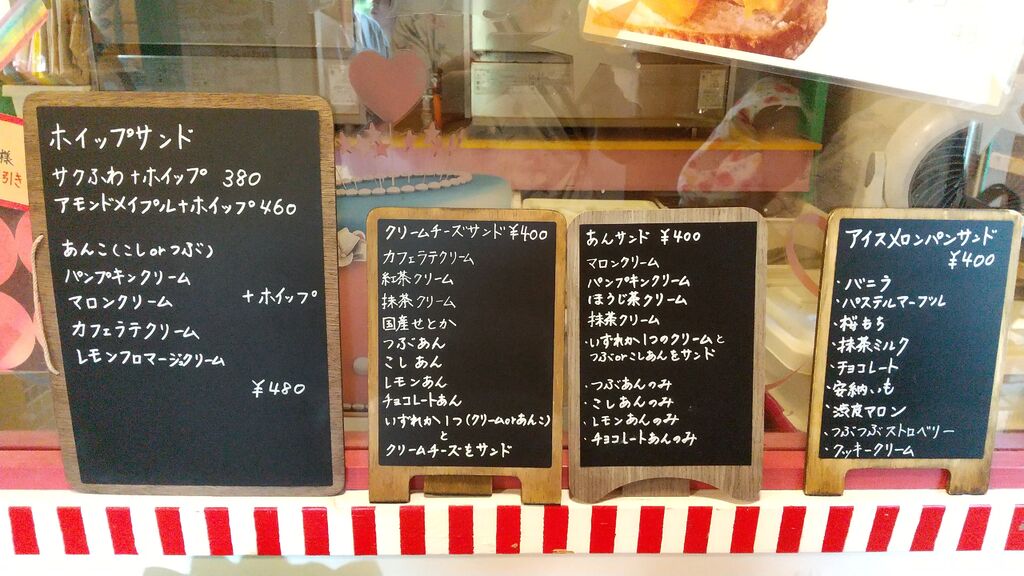 様
引き
ホイップサンド
サクふわ+ホイップ 380
アモンドメイプル+ホイップ 460
あんこ(こしorつぶ)
パンプキンクリーム
マロンクリーム +ホイップ
カフェラテクリーム
レモンフロマージュクリーム
¥480
クリームチーズサンド ¥400
カフェラテクリーム
紅茶クリーム
抹茶クリーム
国産せとか
つぶあん
こしあん
レモンあん
チョコレートあん
いずれか1つ(クリームorあんこ)
と
クリームチーズをサンド
あんサンド ¥400
マロンクリーム
パンプキンクリーム
ほうじ茶クリーム
抹茶クリーム
・いずれか1つのクリームと
つぶorこしあんをサンド
・つぶあんのみ
・こしあんのみ
・レモンあんのみ
・チョコレートあんのみ
アイスメロンパンサンド
¥400
・バニラ
・パステルマーブル
・桜もち
・抹茶ミルク
・チョコレート
・安納いも
・渋皮マロン
・つぶつぶストロベリー
・クッキークリーム